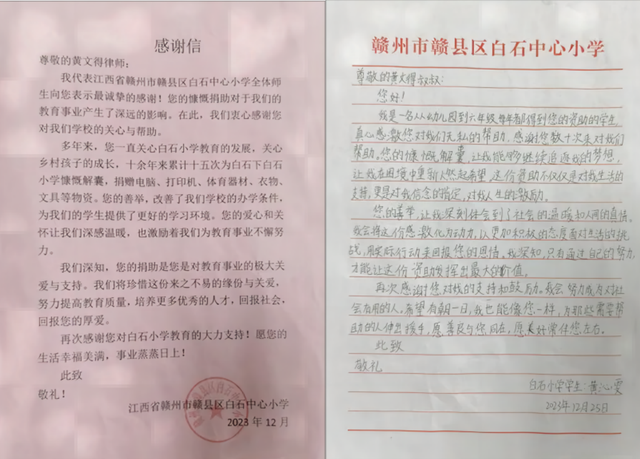 感谢信
尊敬的黄文得律师：
我代表江西省赣州市赣县区白石中心小学全体师
生向您表示最诚挚的感谢！您的慷慨捐助对于我们的
教育事业产生了深远的影响。在此，我们衷心感谢您
对我们学校的关心与帮助。
多年来，您一直关心白石小学教育的发展，关心
乡村孩子的成长，十余年来累计十五次为白石下白石
小学慷慨解囊，捐赠电脑、打印机、体育器材、衣物、
文具等物资。您的善举，改善了我们学校的办学条件，
为我们的学生提供了更好的学习环境。您的爱心和关
怀让我们深感温暖，也激励着我们为教育事业不懈努
力。
我们深知，您的捐助是您是对教育事业的极大关
爱与支持。我们将珍惜这份来之不易的缘份与关爱，
努力提高教育质量，培养更多优秀的人才，回报社会，
回报您的厚爱。
再次感谢您对白石小学教育的大力支持！愿您的
生活幸福美满，事业蒸蒸日上！
此致
敬礼！
江西省赣州市赣县区白石中心小学
2023 年 12 月
赣州市赣县区白石中心小学
尊敬的黄文得叔叔：
您好！
我是一名从幼儿园到六年级每年都得到您的资助的学生，
真心感谢您对我们无私的帮助。感谢您数十次来对我们
帮助，您的慷慨解囊，让我能够继续追逐我的梦想，
让我在困境中重新燃起希望。这份资助不仅仅是对我生活的
支持，更是对我信念的肯定，对我人生的鼓励。
您的善举，让我深刻体会到了社会的温暖和人间的真情。
我会将这份感激化为动力，以更加积极的态度面对生活的挑
战，用实际行动来回报您的恩情。我深知，只有通过自己的努力
才能让这份资助发挥出最大的价值。
再次感谢您对我的支持和鼓励，我会努力成为对社
会有用的人，希望有朝一日，我也能像您一样，为那些需要帮
助的人伸出援手，愿善良与您同在，愿美好常伴您左右。
此致
敬礼
白石小学学生：黄心雯
2023年12月25日